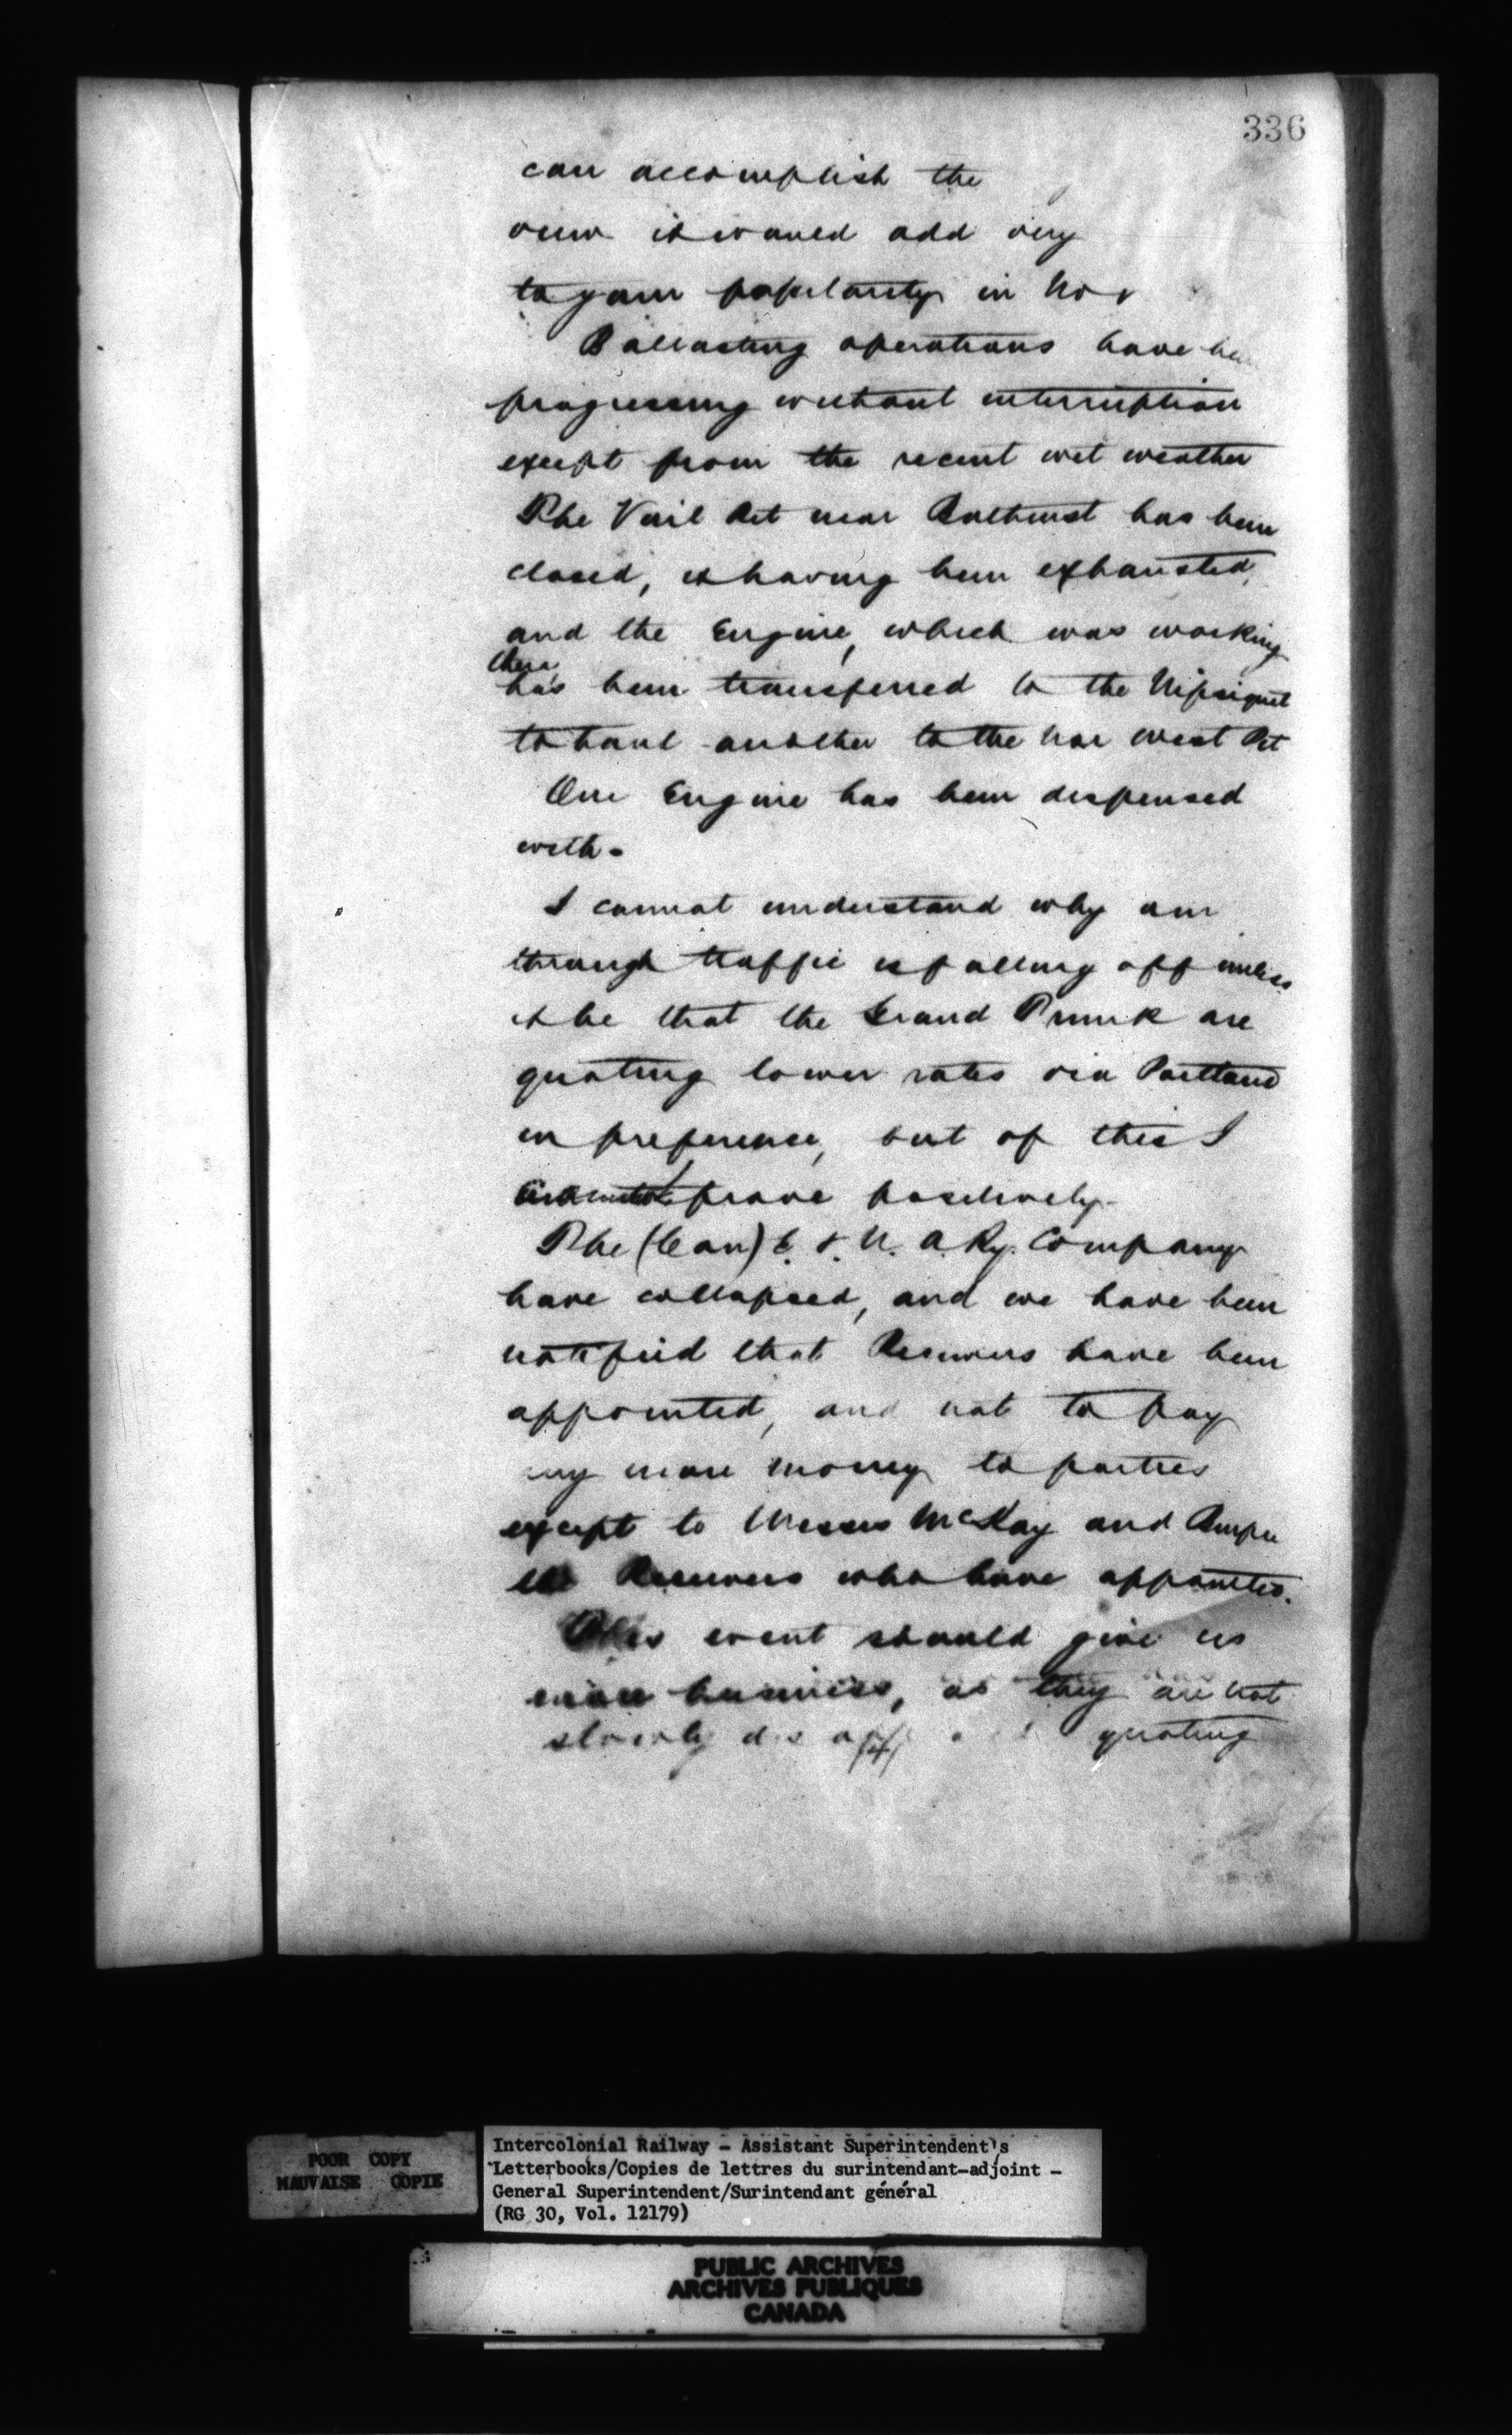 336
can accomplish the
view it would add very
to your popularity in Nor
Ballasting operations have be
progressing without interruption
except from the recent wet weather
The Vail Pit near Bathurst has been
closed, it having been exhausted,
and the Engine, which was working
there,
has been transferred to the Nipsiguit
to haul another to the Nor West Pit
One Engine has been dispensed
with.
I cannot understand why our
through traffic is falling off unless
it be that the Grand Trunk are
quoting lower rates via Portland
in preference, but of this I
prove positively.
The (Con) E. & N. A Ry. Company
have collapsed, and we have been
notified that Receivers have been
appointed, and not to pay
any more money to parties
except to Messrs McKay and
Receivers who have appointed.
This event should give us
more business, as they are not
slowly quoting
POOR COPY
MAUVAISE COPIE
Intercolonial Railway - Assistant Superintendent's
Letterbooks/Copies de lettres du surintendant-adjoint -
General Superintendent/Surintendant général
(RG 30, Vol. 12179)
PUBLIC ARCHIVES
ARCHIVES PUBLIQUES
CANADA